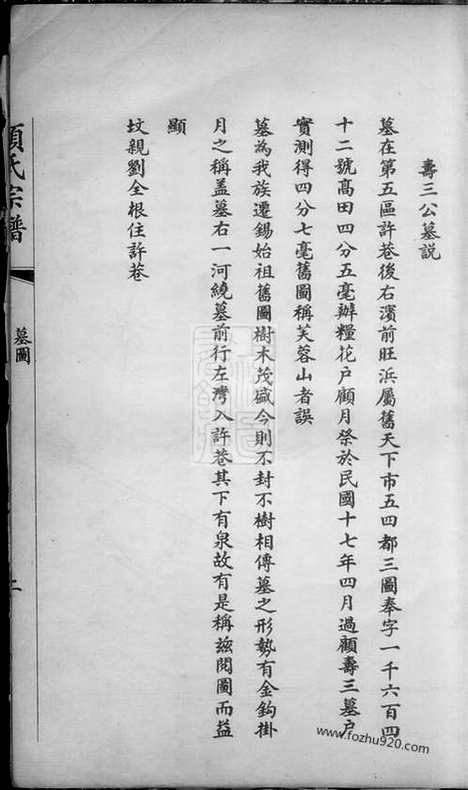 壽三公墓説
墓在第五區許巷後右濱前旺浜屬舊天下市五四都三圖奉字一千六百四
十二號高田四分五毫辦糧花戶顧月祭於民國十七年四月過顧壽三墓戶
實測得四分七毫舊圖稱芙蓉山者誤
墓為我族遷錫始祖舊圖樹木茂盛今則不封不樹相傳墓之形勢有金鈎掛
月之稱盖墓右一河繞墓前行左灣入許巷其下有泉故有是稱茲閲圖而益
顯
坟親劉全根住許巷
氏宗譜
墓圖
www.fozhu920.com